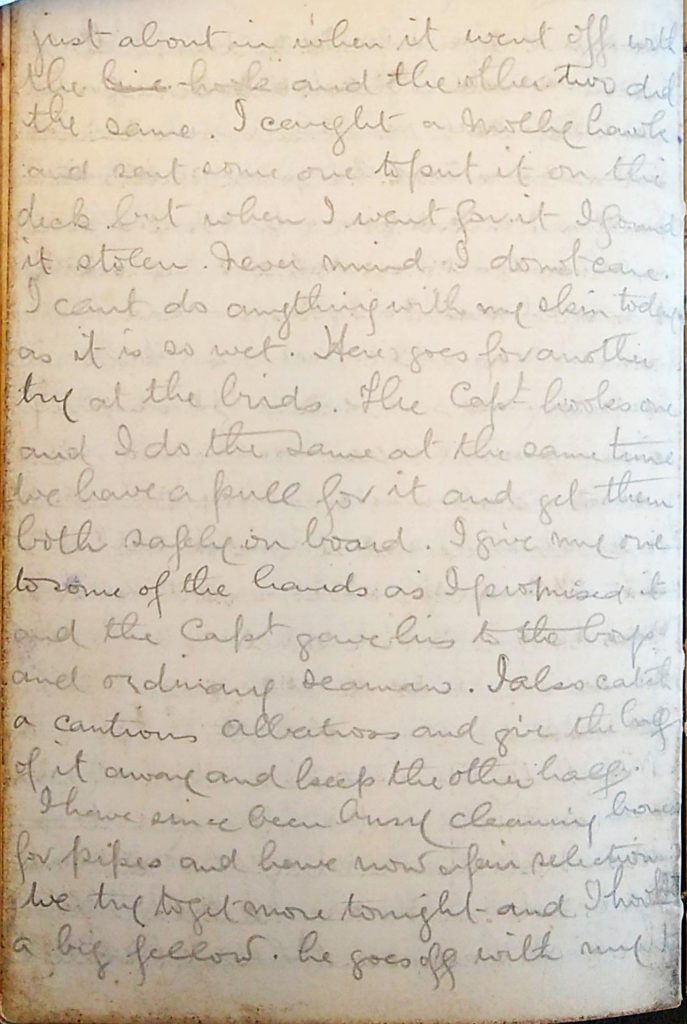 just about in when it went off with
the line hook and the other two did
the same. I caught a Molly hawk
and sent some one to put it on the
deck but when I went for it I found
it stolen. Never mind I do not care.
I cant do anything with my skin today
as it is so wet. Here goes for another
try at the birds. The Capt hooks one
and I do the same at the same time
We have a pull for it and get them
both safely on board. I give my one
to some of the hands as I promised it
and the Capt gave his to the boys
and ordinary seaman. I also catch
a cautious albatross and give the half
of it away and keep the other half.
I have since been busy cleaning bones
for pipes and have now a fair selection
We try to get more tonight and I hook
a big fellow. he goes off with my